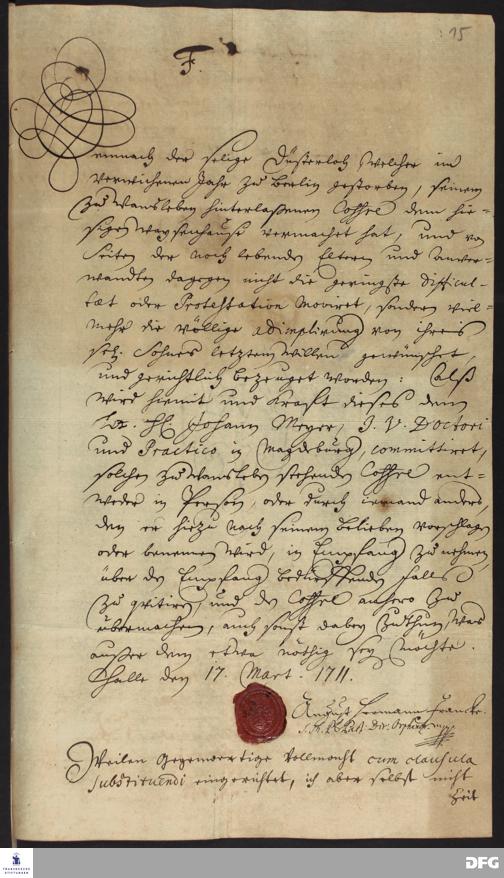 15
F.
Demnach der selige Düsterloh, welcher im
verwichenen Jahr zu Berlin gestorben, seinen
zu Wansleben hinterlaßenen Coffre dem hie-
sigen Waysenhause vermachet hat, und von
Seiten der noch lebenden Eltern und Anver-
wandten dagegen nicht die geringste difficul-
tät oder Protestation moviret, sondern viel-
mehr die völlige adimplirung von ihres
sel. Sohnes letztem willen gewünschet,
und gerichtlich bezeuget worden: Alß
wird hiemit und Krafft dieses dem
Hn. Johann Meyer, J. V. Doctori
und Practico in Magdeburg, committiret,
solchen zu Wansleben stehenden Coffre ent-
weder in Person, oder durch iemand anders,
den er hiezu nach seinem belieben vorschlagen
oder benennen wird, in Empfang zu nehmen,
über den Empfang bedürffenden falls
zu qvitiren, und den Coffre anhero zu
übermachen, auch sonst dabey zu thun, was
außer dem etwa nöthig seyn möchte.
Halle den 17. Mart. 1711.
August Hermann Francke.
Weilen Gegenwertige Vollmacht cum clausula
substituendi eingerichtet, ich aber selbst nicht
Zeit
FRANCKESCHE
STIFTUNGEN
DFG